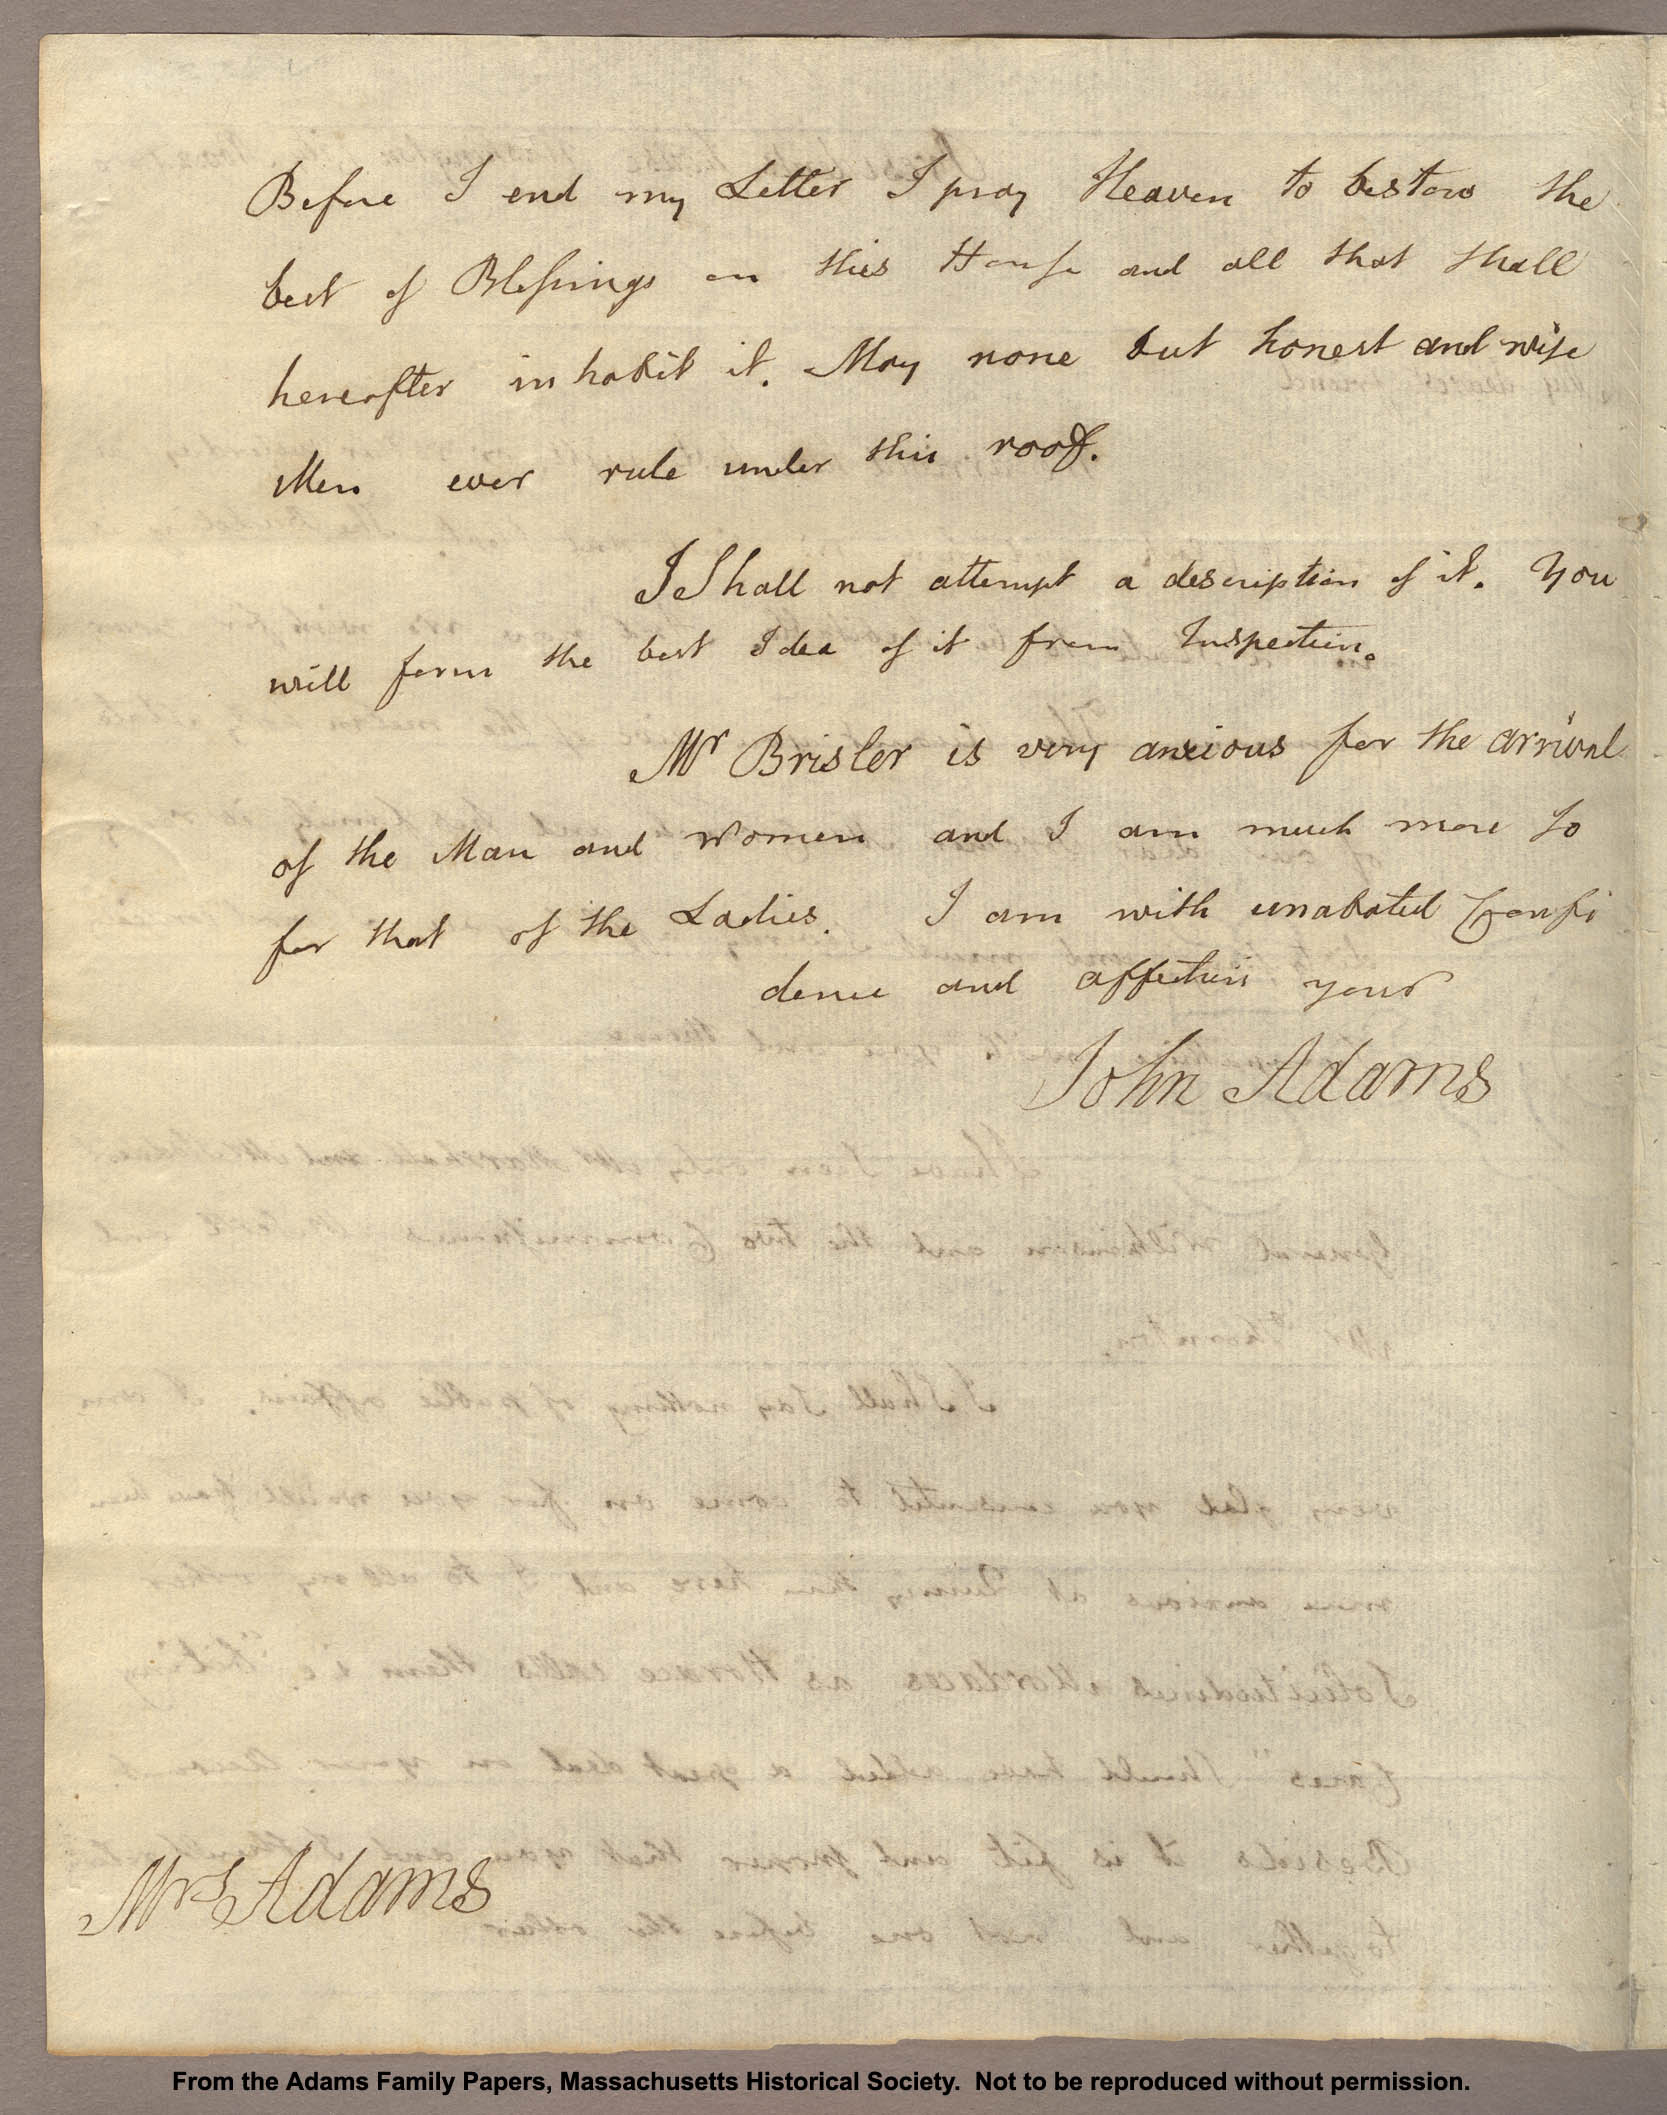 Before I end my Letter I pray Heaven to bestow the
best of Blessings on this House and all that shall
hereafter inhabit it. May none but honest and wise
Men ever rule under this roof.
I Shall not attempt a description of it. You
will form the best Idea of it from Inspection.
Mr Brisler is very anxious for the arrival
of the Man and Women and I am much more so
for that of the Ladies. I am with unabated Confi
dence and affection your
John Adams
Mrs Adams
From the Adams Family Papers, Massachusetts Historical Society. Not to be reproduced without permission.